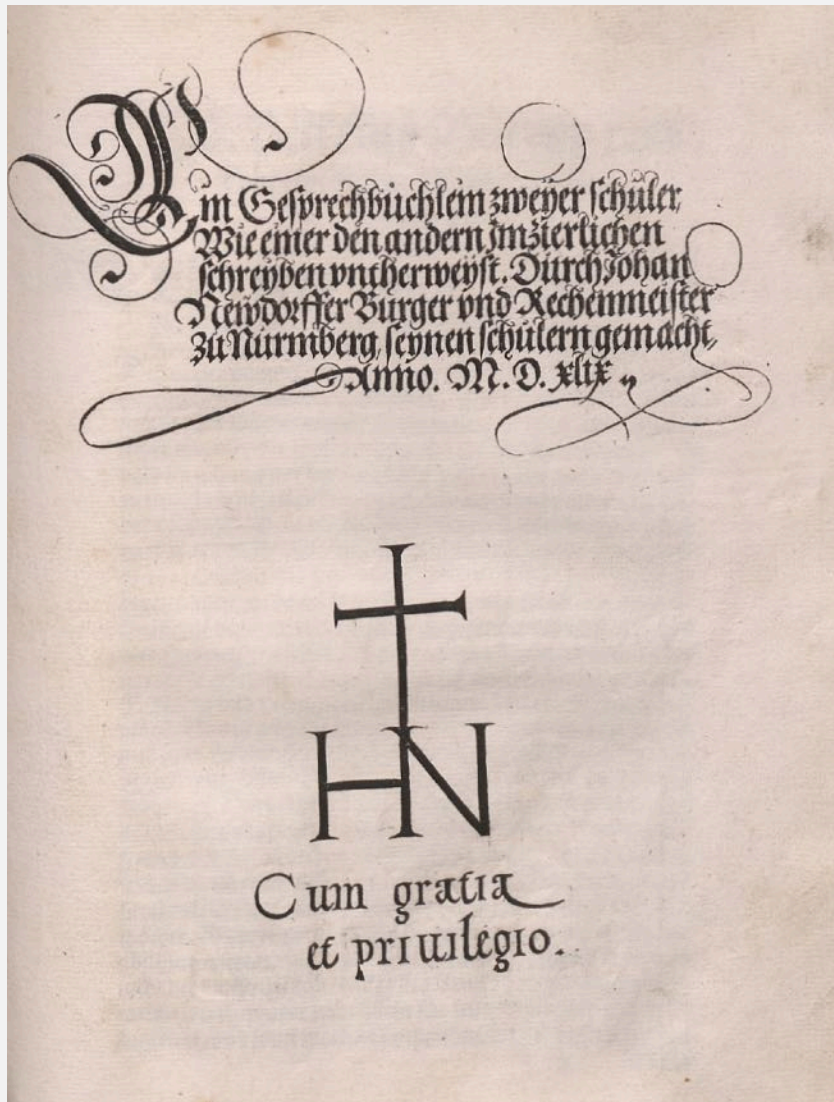 Ein Gesprechbüchlein zweyer schüler,
Wie einer den andern jm zierlichen
schreyben vntherweyst. Durch Johan
Newdorffer Burger vnd Rechenmeister
zu Nurmberg, seynen schülern gemacht,
Anno. M. D. xlix
HN
Cum gratia
et priuilegio.